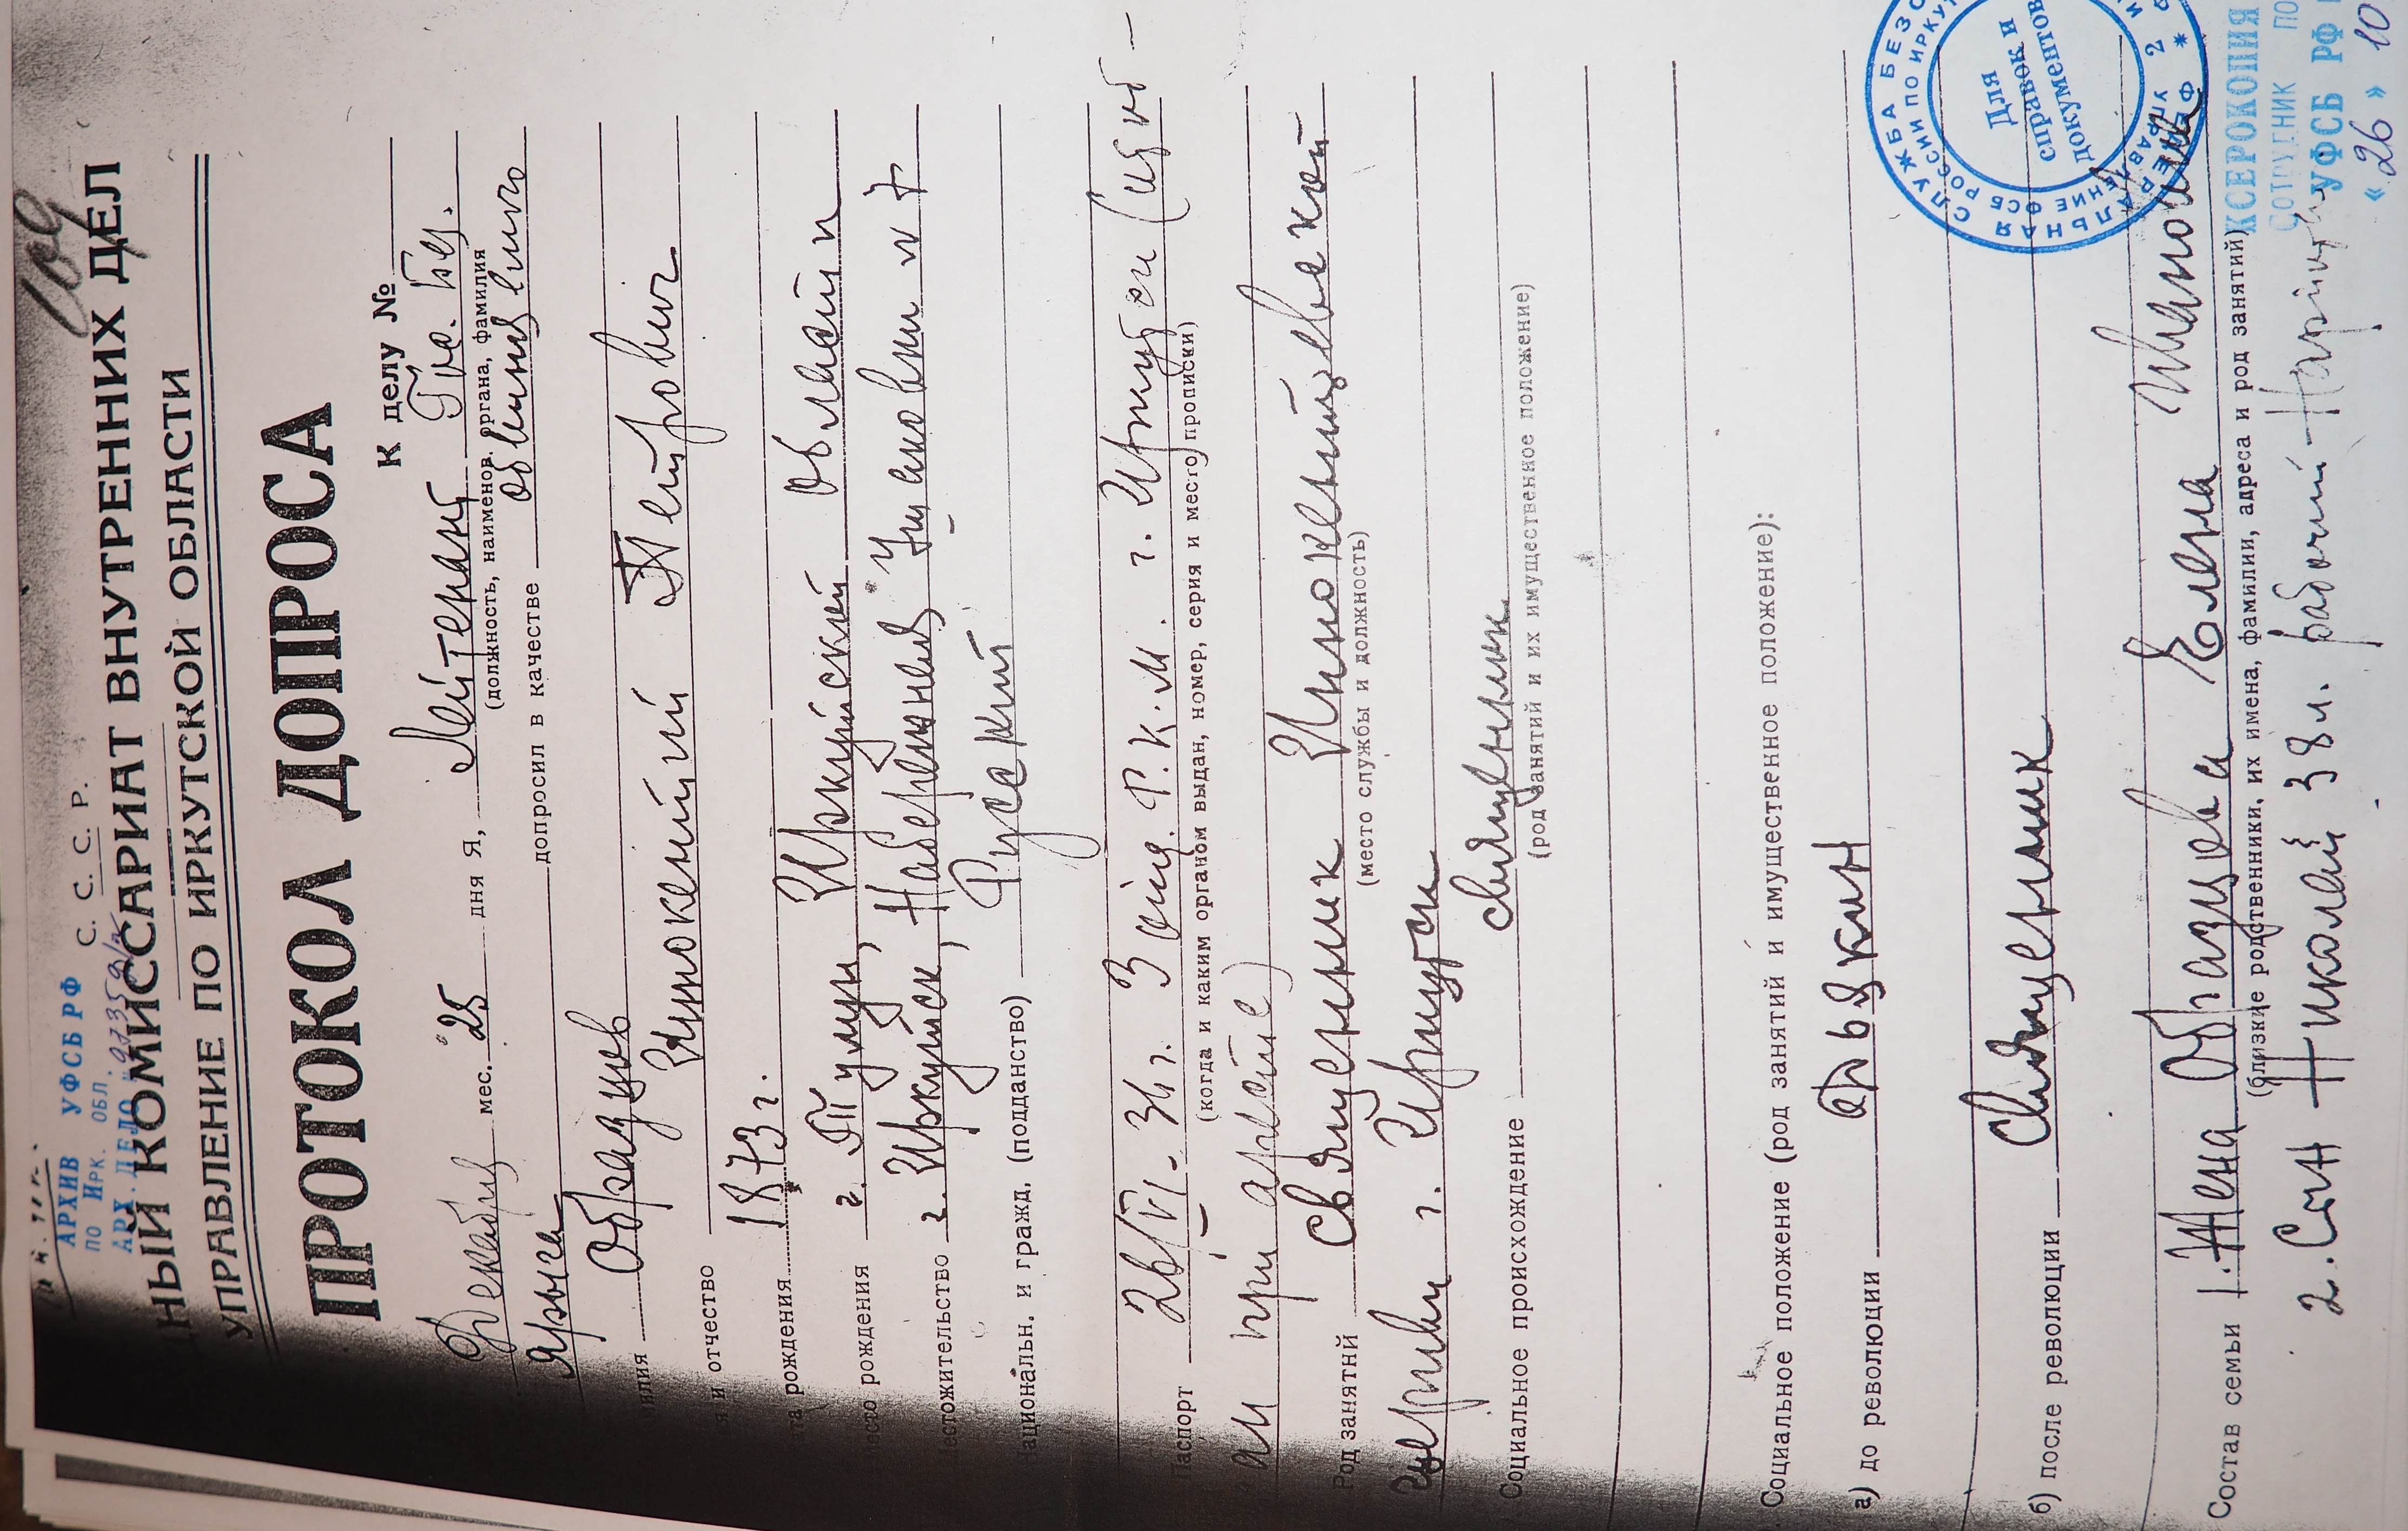 АРХИВ УФСБ РФ
ПО ИРК. ОБЛ.
АРХ. ДЕЛО №
С. С. С. Р.
НЫЙ КОМИССАРИАТ ВНУТРЕННИХ ДЕЛ
УПРАВЛЕНИЕ ПО ИРКУТСКОЙ ОБЛАСТИ
ПРОТОКОЛ ДОПРОСА
К делу №
Декабря мес. "25 дня Я, Лейтенант Гос. Без.
(должность, наименов. органа, фамилия
допросил в качестве обвиняемого
илия Образцов
я и отчество Инокентий Петрович
та рождения 1873 г.
есто рождения г. Тулун, Иркутской области
естожительство г. Иркутск, Набережная Ушаковки № 7
Национальн. и гражд. (подданство) Русский
Паспорт 26/VI-36г. 3 отд. Р.К.М. г. Иркутска (изъят
(когда и каким органом выдан, номер, серия и место прописки)
при аресте)
Род занятий священник Инокентьевской
(место службы и должность)
церкви г. Иркутск
Социальное происхождение священник
(род занятий и их имущественное положение)
Социальное положение (род занятий и имущественное положение):
а) до революции дьякин
б) после революции Священник
Состав семьи 1. Жена Образцева Елена Ивановна
(близкие родственники, их имена, фамилии, адреса и род занятий)
2. Сын Николай 38 л. рабочий
ФЕДЕРАЛЬНАЯ СЛУЖБА БЕЗО
УПРАВЛЕНИЕ ФСБ РОССИИ ПО ИРКУТ
Для
справок и
документов
2
КСЕРОКОПИЯ
СОТРУДНИК ПО
УФСБ РФ
«26» 10